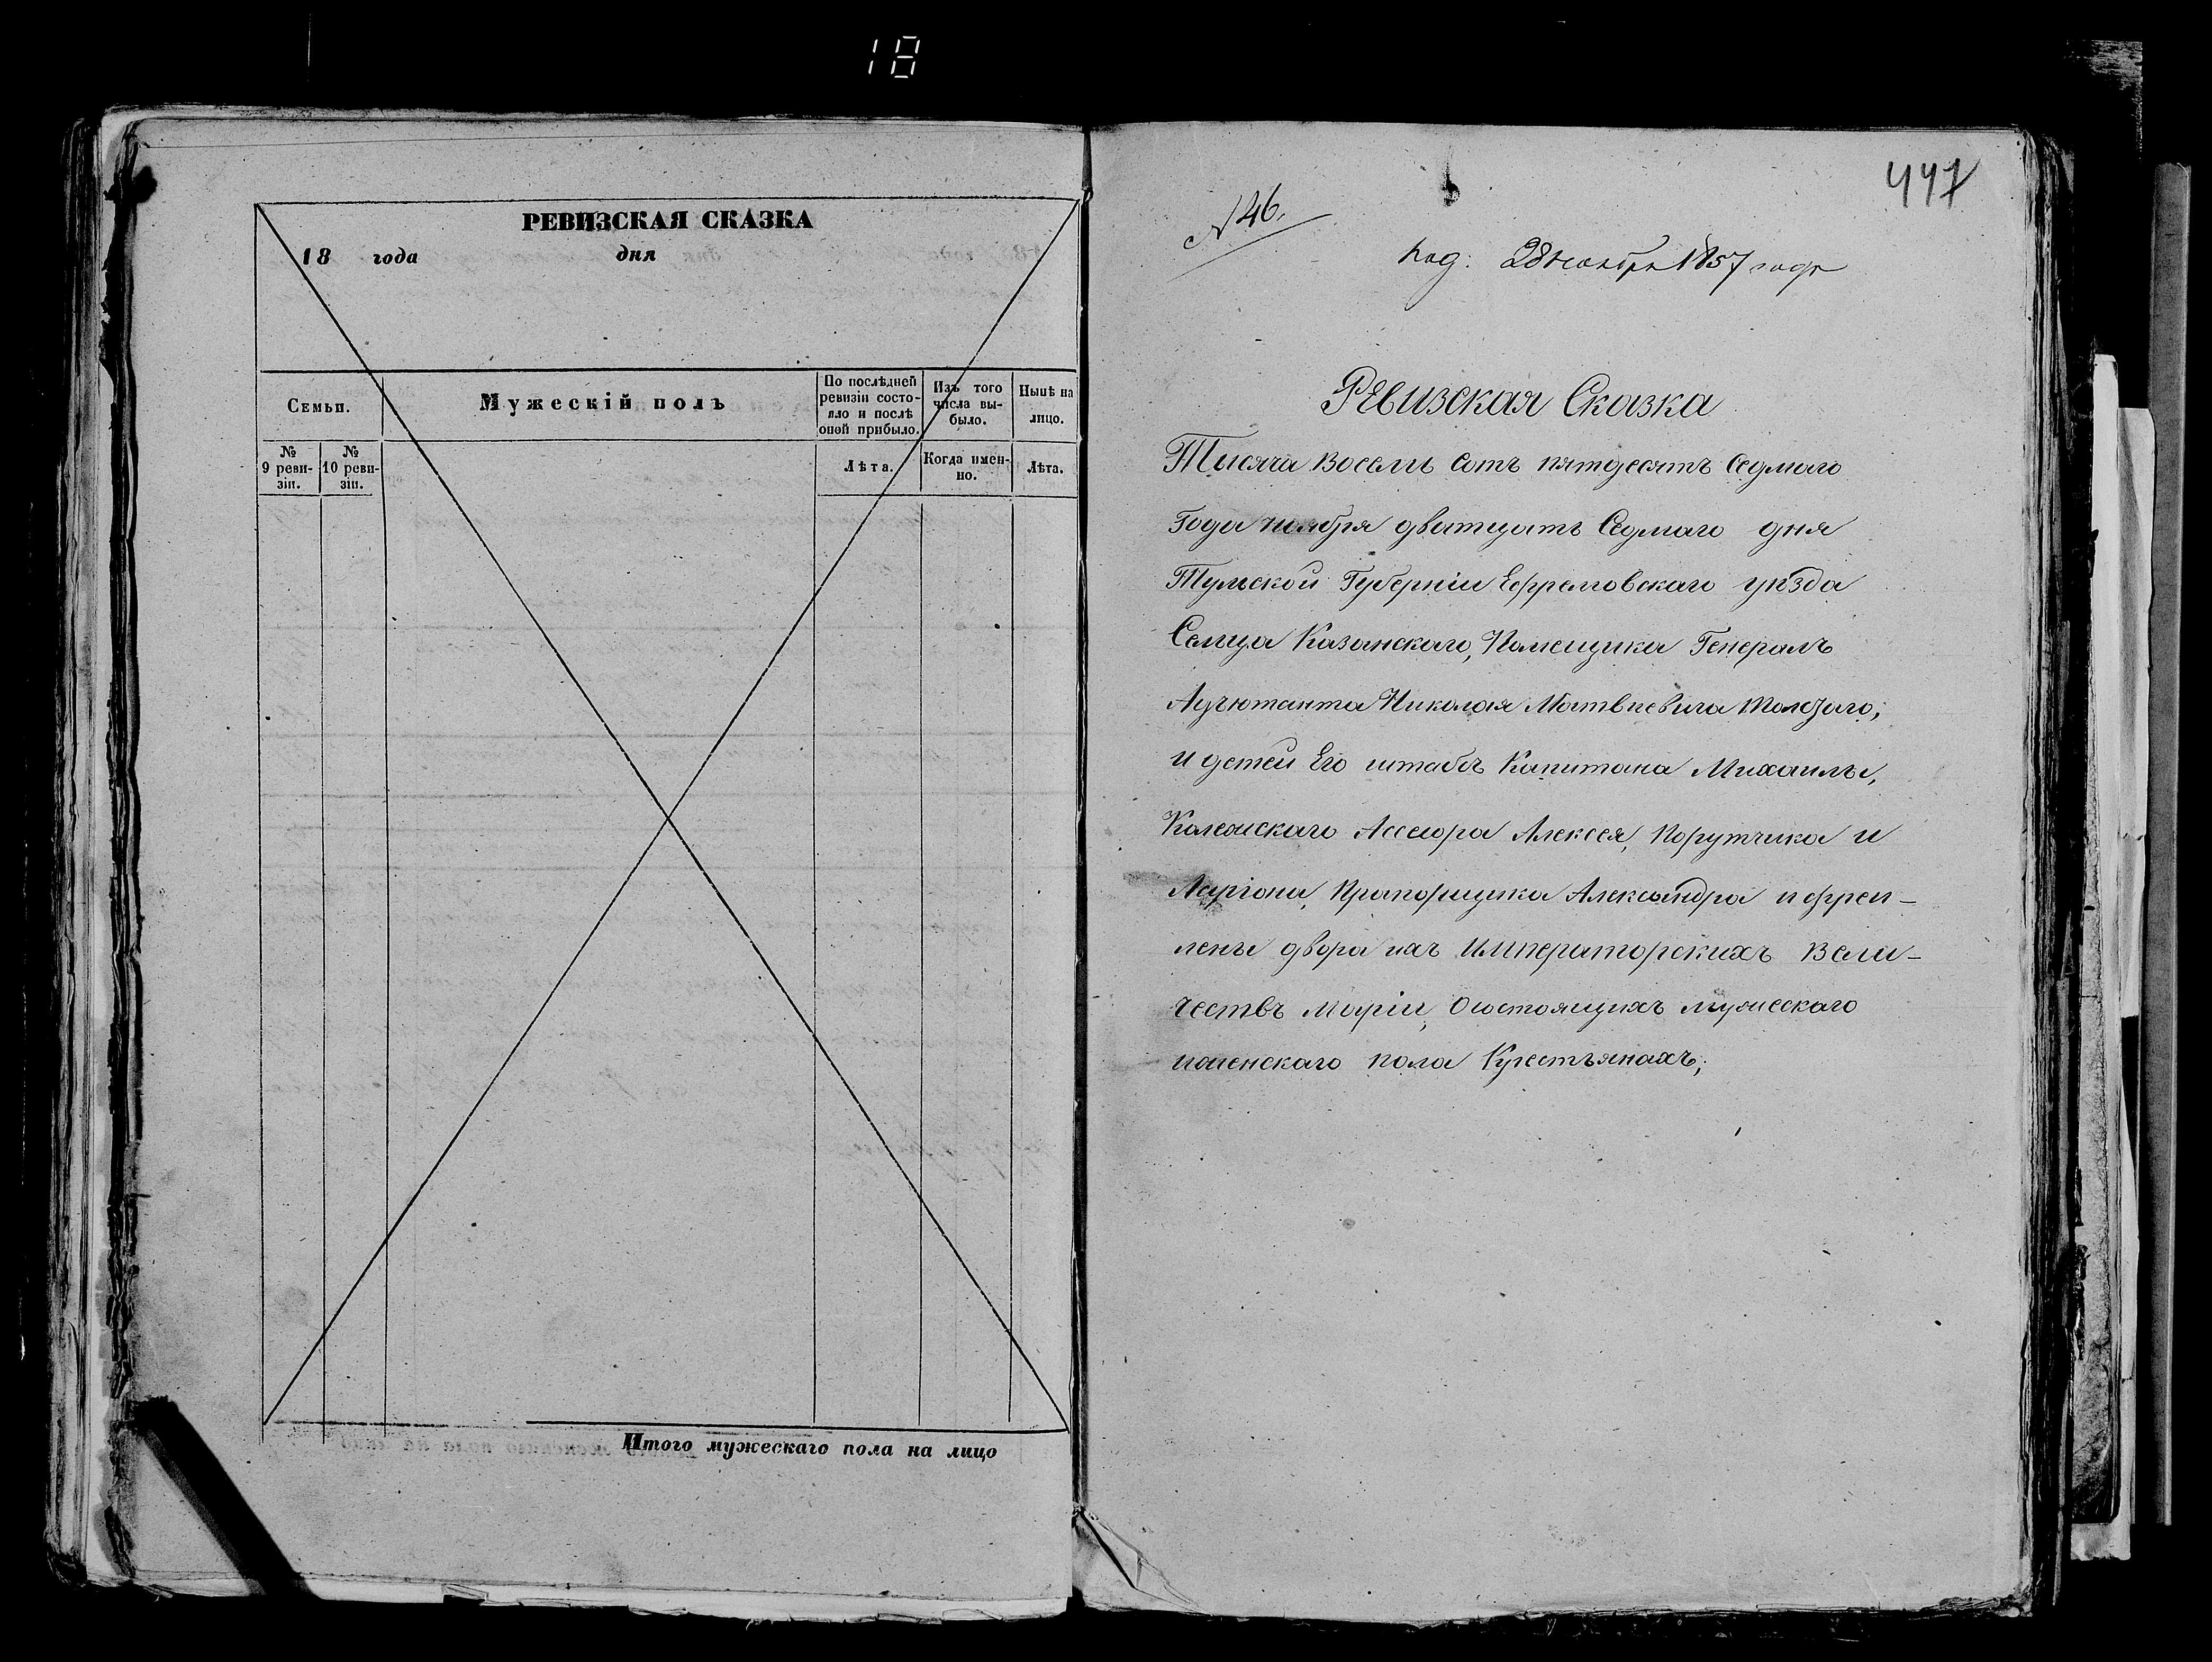 18
РЕВИЗСКАЯ СКАЗКА
18 года дня
Семьи.
Мужескій полъ
По послѣдней ревизіи состояло и послѣ оной прибыло.
Изъ того числа выбыло.
Нынѣ на лицо.
№ 9 ревизіи.
№ 10 ревизіи.
Лѣта.
Когда именно.
Лѣта.
Итого мужескаго пола на лицо
447
N 46.
Под: 28 ноября 1857 года
Ревизская Сказка
Тысяча Восемь Сотъ пятдесятъ Седмого
Года ноября дватцать Седмаго дня
Тульской Губерніи Ефремовскаго уѣзда
Сельца Казанскаго, Помещика Генералъ
Адъютанта Николая Матвѣевича Толстаго,
и детей Его штабсъ Капитана Михаилы,
Колежскаго Ассесора Алексея, Порутчика и
Лариона, Прапорщика Александра и фреи-
лены двора ихъ Императорскихъ Вели-
чествъ Маріи, О состоящихъ мужескаго
иженскаго пола Крестьянахъ;